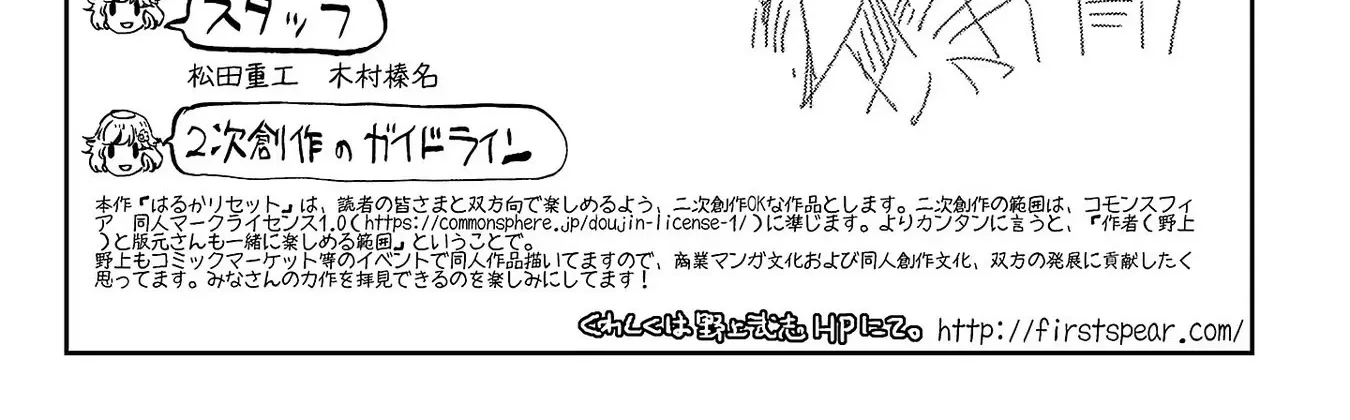 スタッフ
松田重工　木村榛名
2次創作のガイドライン
本作『はるかリセット』は、読者の皆さまと双方向で楽しめるよう、二次創作OKな作品とします。二次創作の範囲は、コモンスフィ
ア　同人マークライセンス1.0(https://commonsphere.jp/doujin-license-1/)に準じます。よりカンタンに言うと、『作者(野上
)と版元さんも一緒に楽しめる範囲』ということで。
野上もコミックマーケット等のイベントで同人作品描いてますので、商業マンガ文化および同人創作文化、双方の発展に貢献したく
思ってます。みなさんの力作を拝見できるのを楽しみにしてます！
くわしくは野上武志HPにて。http://firstspear.com/